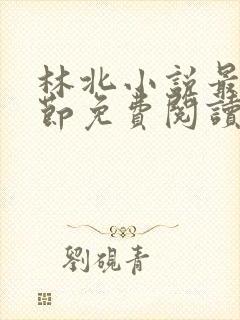 林北小説最
節免費閱讀
劉硯青